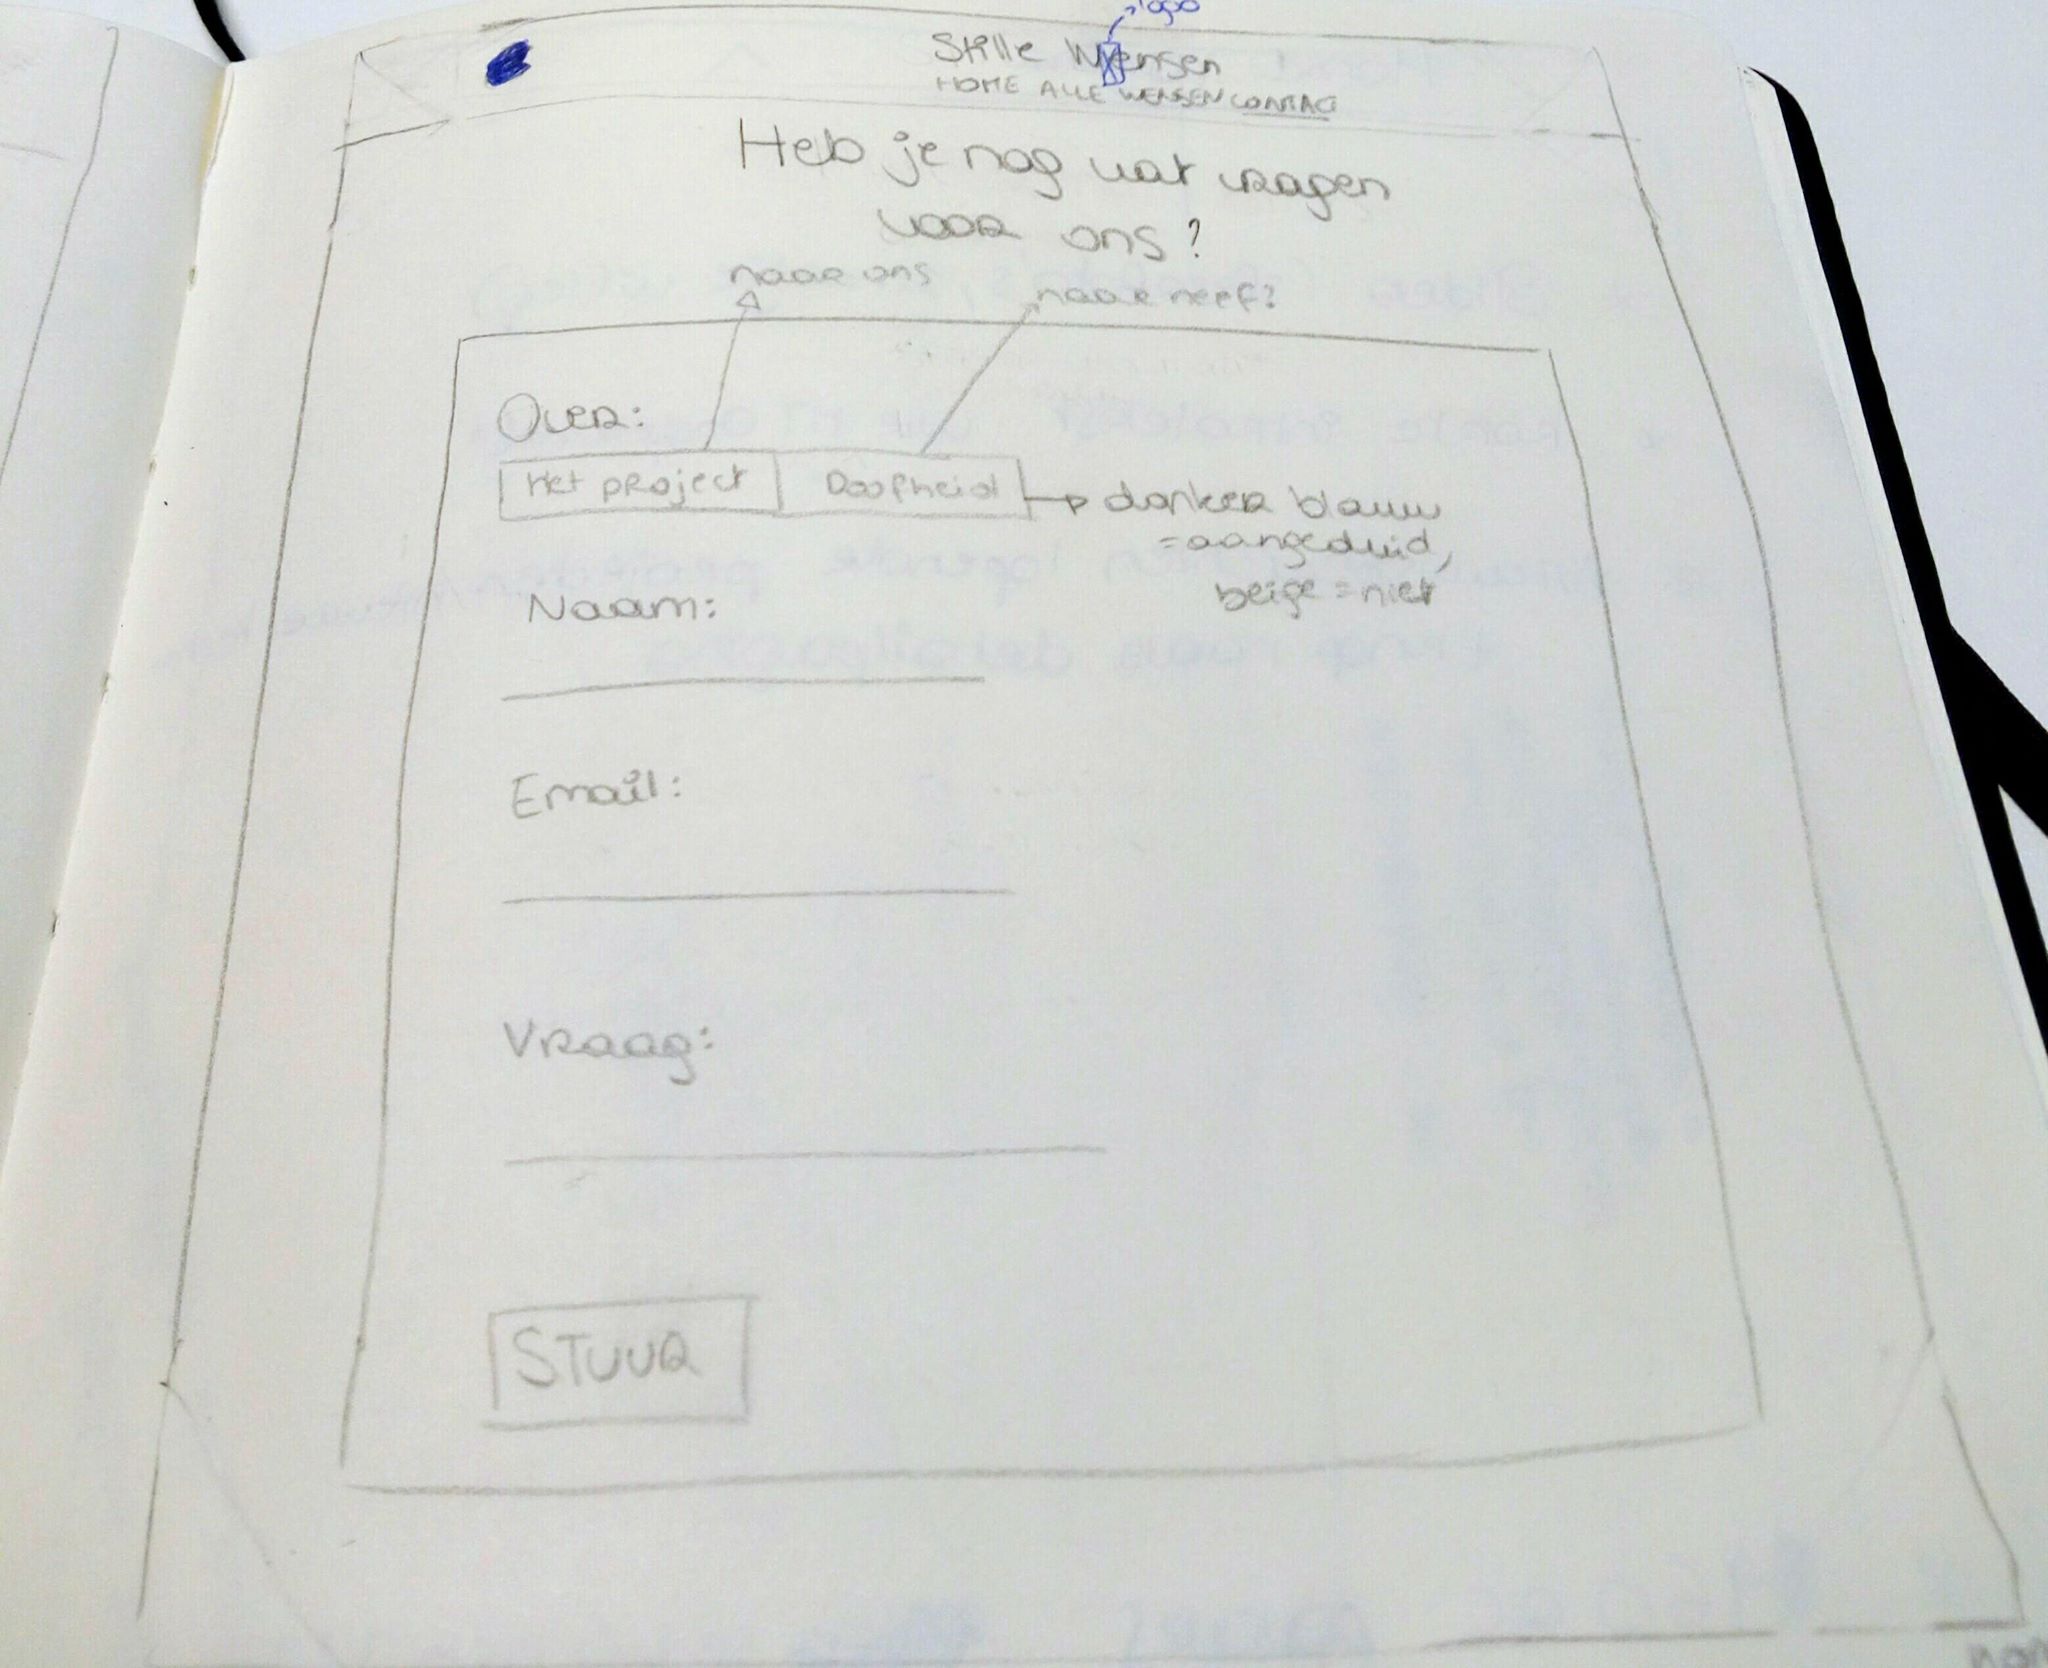 logo
Stille Wensen
HOME ALLE WENSEN CONTACT
Heb je nog wat vragen
voor ons?
naar ons
naar neef?
Over:
Het project
Doofheid
donker blauw
=aangeduid,
beige = niet
Naam:
Email:
Vraag:
STUUR